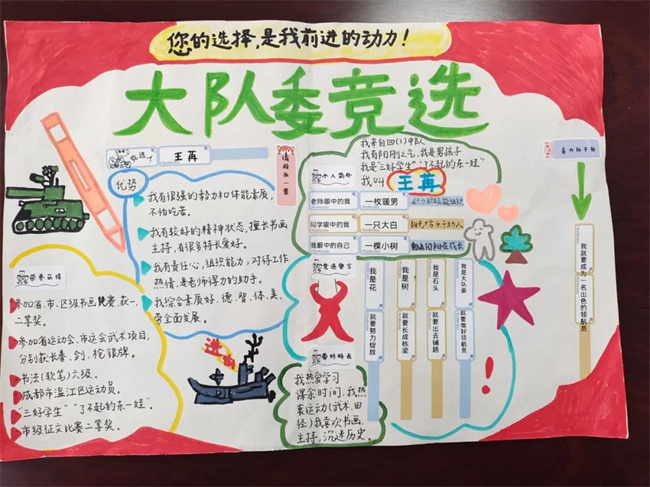 您的选择,是我前进的动力!
大队委竞选
王苒
请投我一票
优势
我有很强的毅力和体能素质,
不怕吃苦。
我有较好的精神状态,擅长书画
主持,有很多特长爱好。
我有责任心,组织能力,对待工作
热情,是老师得力的助手。
我综合素质好,德、智、体、美、
劳全面发展。
荣誉获得
参加省、市、区级书画比赛获一、
二等奖。
参加省运动会、市运会武术项目,
分别获长拳、剑、枪银牌。
书法(软笔)六级。
成都市温江区运动员。
“三好学生”“了不起的东一娃”。
市级征文比赛二等奖。
我来自四(1)中队
我有阳刚之气,我是男孩子
我是“三好学生”“了不起的东一娃”
我叫 王苒
个人简介
老师眼中的我 一枚暖男
同学眼中的我 一只大白
我眼中的自己 一棵小树
竞选宣言
我是花
就要努力绽放
我是树
就要长成栋梁
我是石头
就要出去铺路
我是大队委
就要做好领航员
我就要成为一名出色的领航员
爱好特长
我热爱学习
课余时间,我热
衷运动(武术、田
径)我喜欢书画、
主持,沉迷历史。